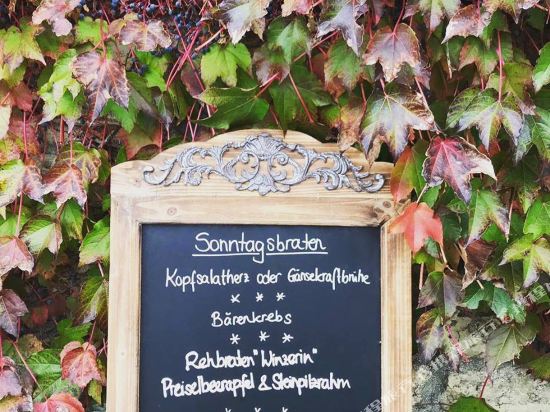 Sonntagsbraten
Kopfsalatherz oder Gänsekraftbrühe
* * *
Bärenkrebs
* * *
Rehbraten "Winzerin"
Preiselbeerapfel & Steinpilzrahm
* * *